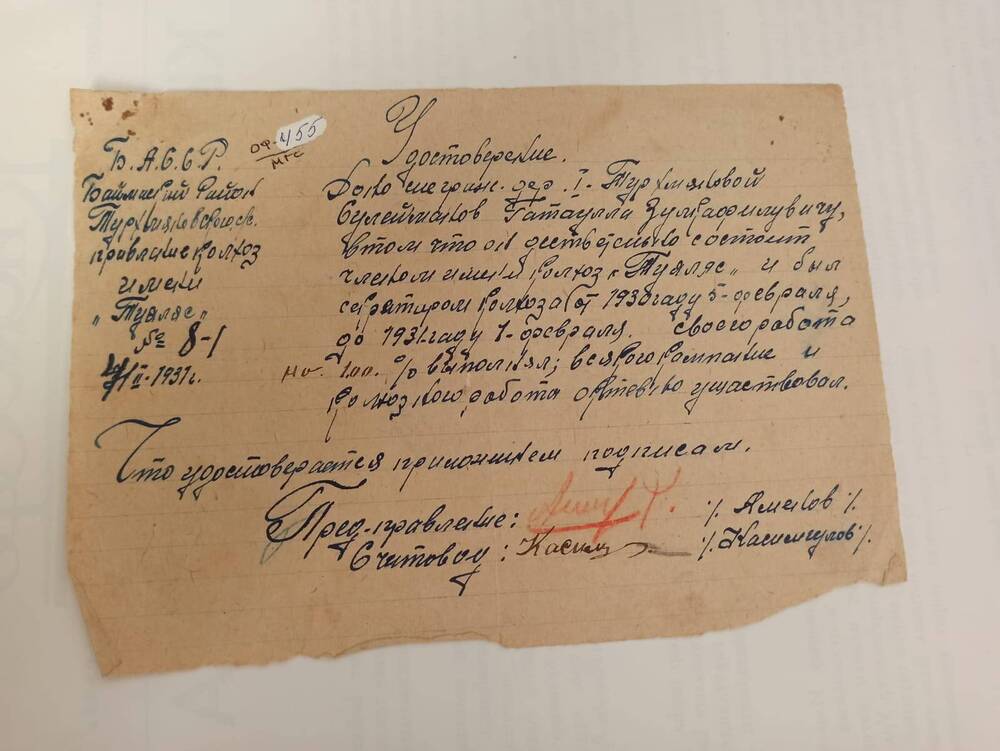 ОФ-455
МГС
Б.А.С.С.Р.
Баймакский район
правление колхоз
имени
„Туяляс“
№ 8-1
II-1931г.
Удостоверение.
Дано сие гражд. дер. I-Турхмяковой
Сулейманов Гатаулла
втом что он действемено состоит
членом имени колхоз „Туяляс“ и был
секретаром колхоза от 1930 году 5-февраля,
до 1931 году 1-февраля. Своего работа
на 100 % выполнял; всякого компание и
колхозного работа актевно ущаствовал.
Что удостоверается приложением подписам.
Пред-правление: /. Аменов /.
Счетовод: Касим /. Касимгулов /.